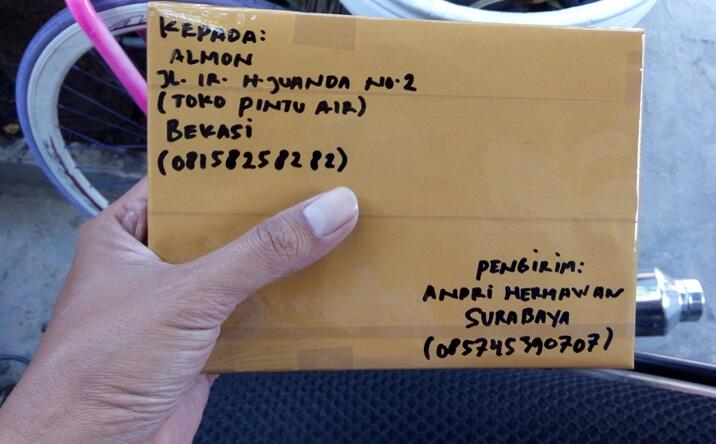 KEPADA:
ALMON
JL. IR. H. JUANDA NO. 2
(TOKO PINTU AIR)
BEKASi
(08158258282)
PENGIRIM:
ANDRI HERMAWAN
SURABAYA
(085745390707)